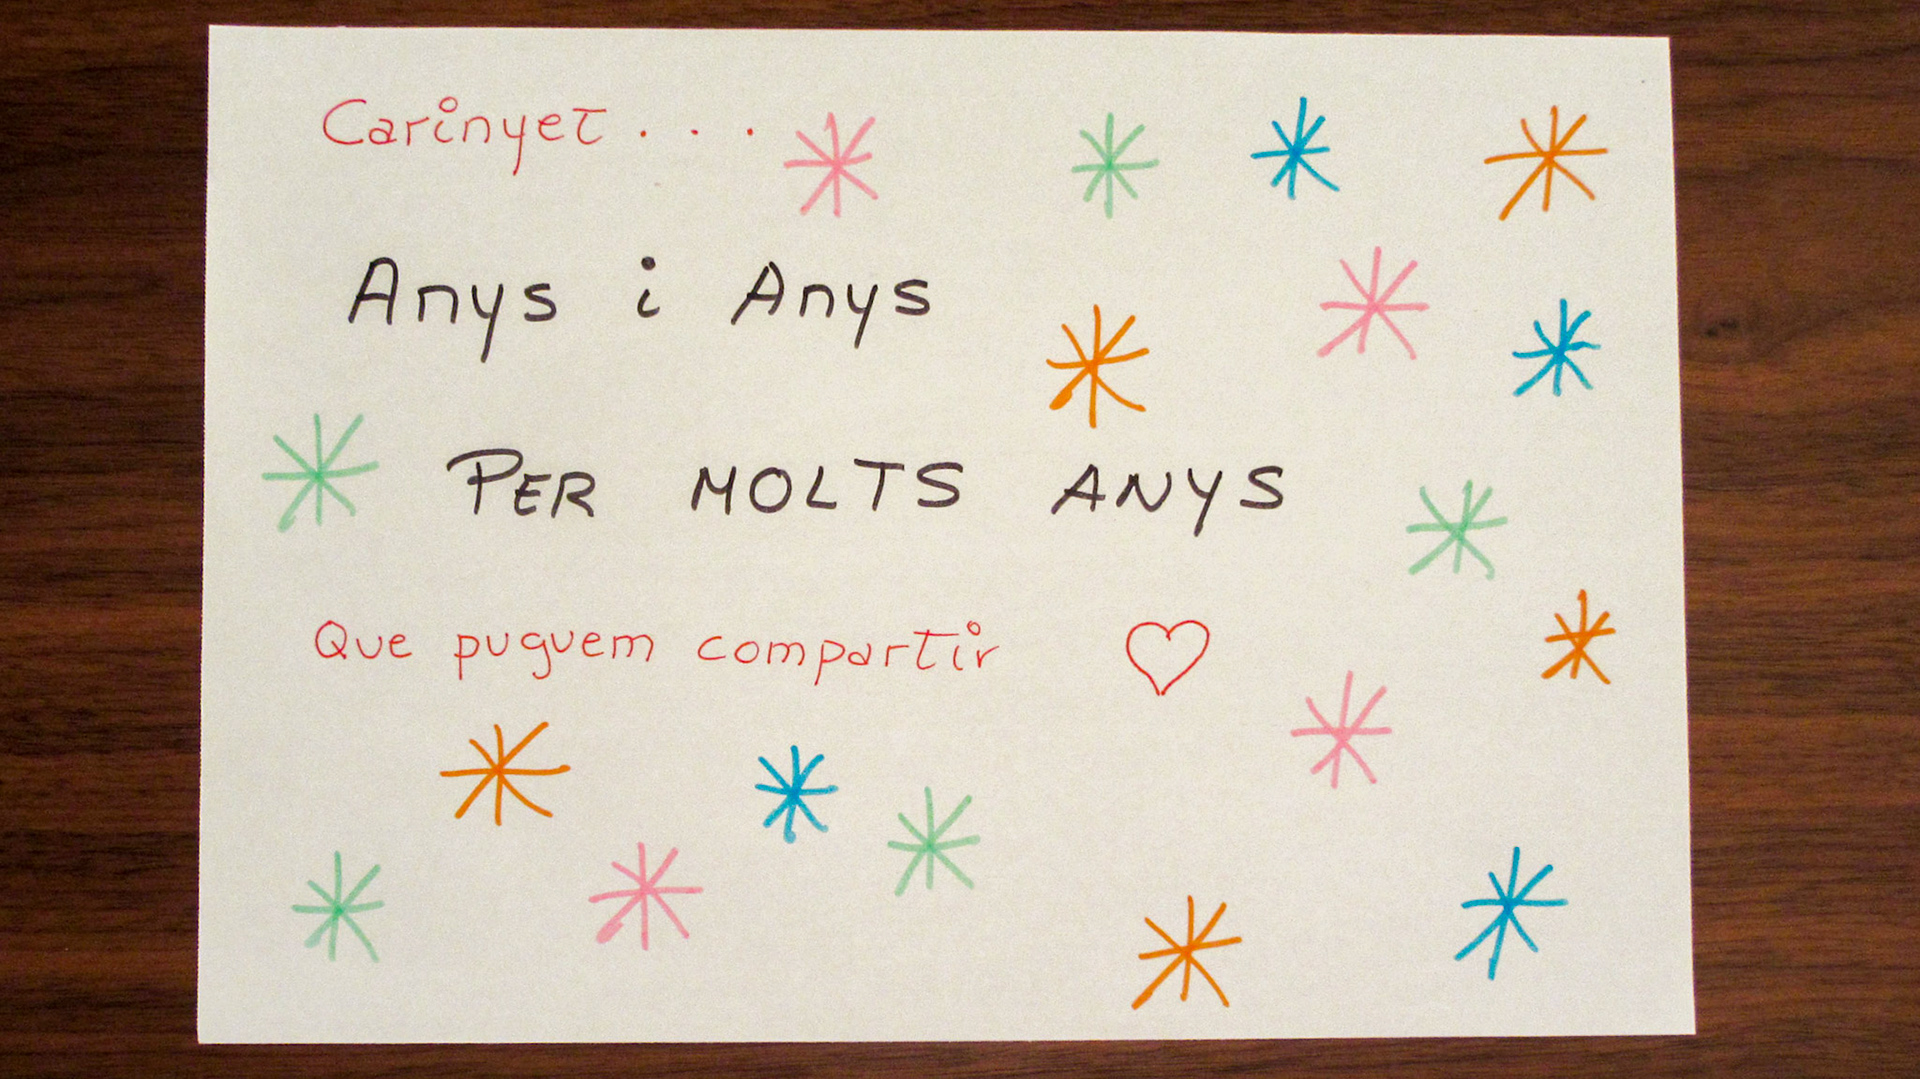 Carinyet...
Anys i Anys
PER MOLTS ANYS
Que puguem compartir